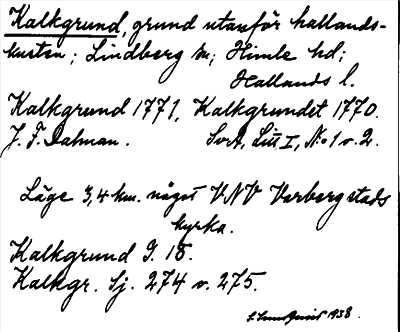 Kalkgrund, grund utanför hallands-
kusten; Lindberg sn; Himle hd;
Hallands l.
Kalkgrund 1771, Kalkgrundet 1770.
J. F. Dalman. SvA, Litt I, No 1 o. 2.
Läge 3,4 km. något VNV Varberg stads
kyrka.
Kalkgrund G. 18.
Kalkgr. Sj. 274 o. 275.
S. Sundqvist 1938.